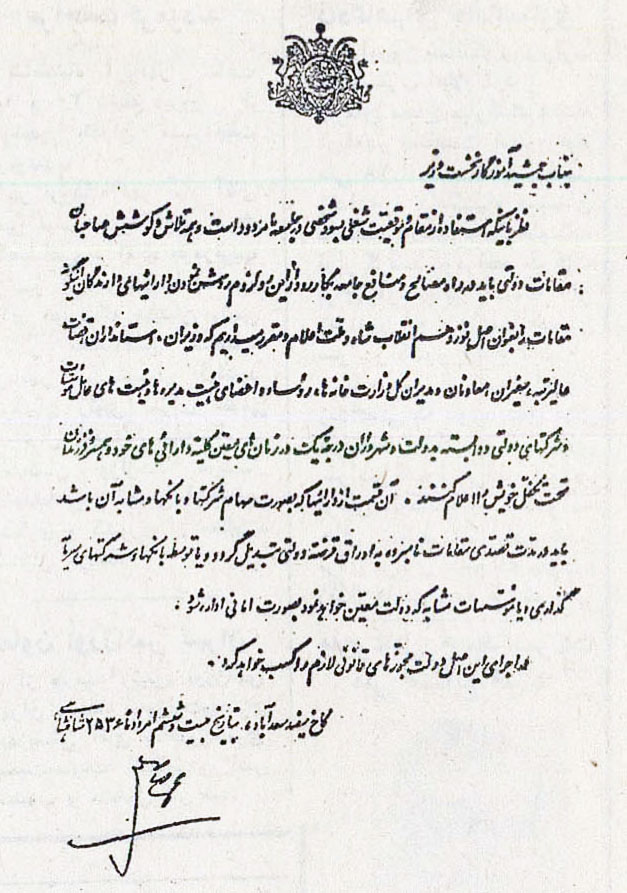 جناب جمشید آموزگار نخست وزیر
نظر باینکه استفاده از مقام و موقعیت شغلی بسود شخصی در جامعه ما مردود است و همه تلاش و کوشش صاحبان
مقامات دولتی باید در راه مصالح و منافع جامعه بکار رود و از این رو لزوم روشن نمودن دارائیهای دارندگان اینگونه
مقامات را بعنوان اصل نوزدهم انقلاب شاه و ملت اعلام و مقرر میداریم که وزیران، استانداران قضات
عالیرتبه، سفیران، معاونان و مدیران کل وزارت خانه ها، رؤساء و اعضای هیئت مدیره ها و هیئت های عامل مؤسسات
و شرکتهای دولتی و وابسته بدولت و شهرداران درجه یک در زمان های معین کلیه دارائی های خود و همسر و فرزندان
تحت تکفل خویش را اعلام کنند. آن قسمت از دارائیها که بصورت سهام شرکتها و بانکها و مشابه آن باشد
باید در مدت تصدی مقامات نامبرده به اوراق قرضه دولتی تبدیل گردد و یا توسط بانکها و شرکتهای سرمایه
گذاری و یا مؤسسات مشابه که دولت معین خواهد نمود بصورت امانی اداره شود.
در اجرای این اصل دولت مجوزهای قانونی لازم را کسب خواهد کرد.
کاخ سفید سعدآباد، بتاریخ بیست و ششم امرداد ماه ۲۵۳۶ شاهنشاهی